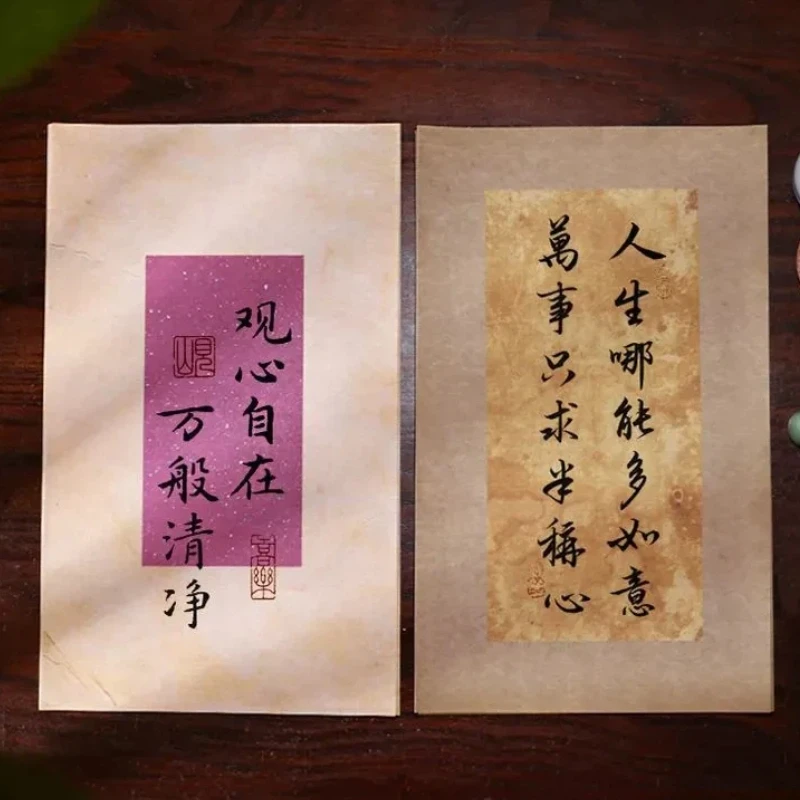 观心自在
万般清净
人生哪能多如意
萬事只求半稱心